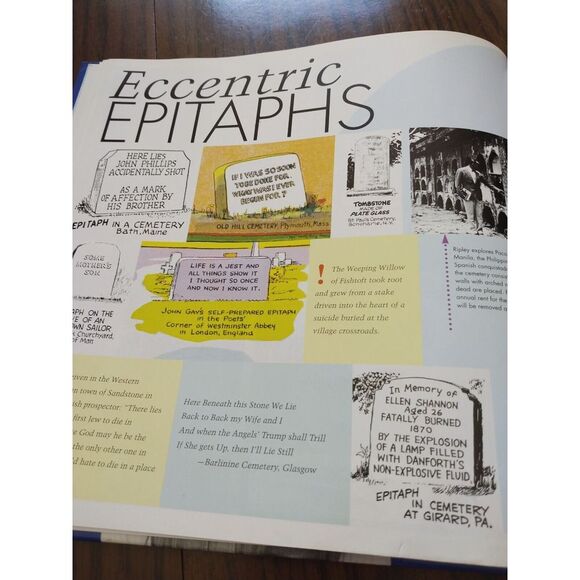 Eccentric
EPITAPHS
HERE LIES
JOHN PHILLIPS
ACCIDENTALLY SHOT
AS A MARK
OF AFFECTION BY
HIS BROTHER
EPITAPH IN A CEMETERY
Bath, Maine
IF I WAS SO SOON
TO BE DONE FOR..
WHAT WAS I EVER
BEGUN FOR.?
OLD HILL CEMETERY, Plymouth, Mass
TOMBSTONE
MADE OF
PLATE GLASS
St. Paul's Cemetery,
Schoharie, N.Y.
Ripley explores
Manila, the Philippi
Spanish conquistado
the cemetery consis
walls with arched
dead are placed. I
annual rent for the
will be removed
SOME
MOTHER'S
SON
APH ON THE
VE OF AN
WN SAILOR
k Churchyard,
of Man
LIFE IS A JEST AND
ALL THINGS SHOW IT
I THOUGHT SO ONCE
AND NOW I KNOW IT.
JOHN GAY'S SELF-PREPARED EPITAPH
in the Poets'
Corner of Westminster Abbey
in London, England
! The Weeping Willow
of Fishtoft took root
and grew from a stake
driven into the heart of a
suicide buried at the
village crossroads.
riven in the Western
n town of Sandstone in
sh prospector: "There lies
first Jew to die in
e God may he be the
the only other one in
'd hate to die in a place
Here Beneath this Stone We Lie
Back to Back my Wife and I
And when the Angels' Trump shall Trill
If She gets Up, then I'll Lie Still
—Barlinine Cemetery, Glasgow
In Memory of
ELLEN SHANNON
Aged 26
FATALLY BURNED
1870
BY THE EXPLOSION
OF A LAMP FILLED
WITH DANFORTH'S
NON-EXPLOSIVE FLUID
EPITAPH
IN CEMETERY
AT GIRARD, PA.